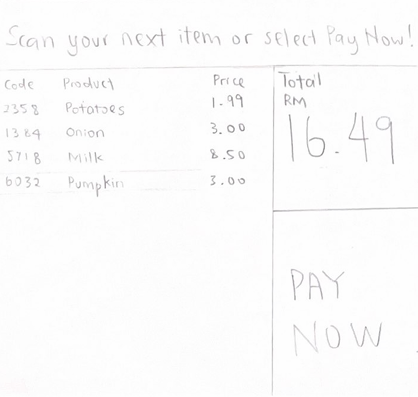 Scan your next item or select Pay Now!
Code Product Price
2358 Potatoes 1.99
1384 Onion 3.00
5718 Milk 8.50
6032 Pumpkin 3.00
Total
RM
16.49
PAY
NOW